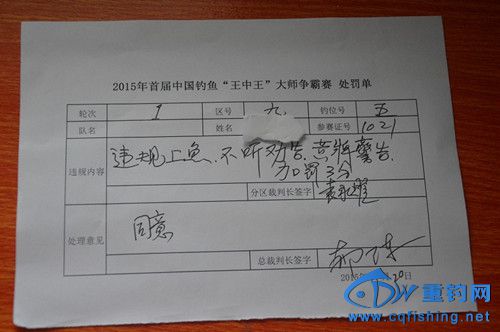 2015年首届中国钓鱼“王中王”大师争霸赛 处罚单
轮次 1 区号 九 钓位号 五
队名 姓名 参赛证号 1021
违规内容 违规上鱼.不听劝告.黄牌警告.
加罚3分
分区裁判长签字
处理意见 同意
总裁判长签字
2015年 20日
重钓网
www.cqfishing.net